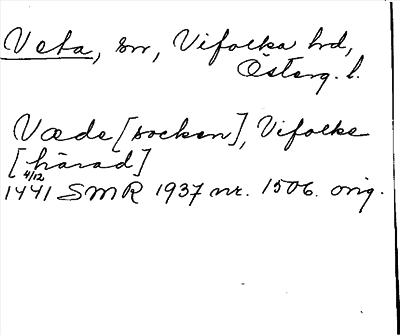 Veta, sn, Vifolka hd,
Österg. l.
Væde [socken], Vifolke
[härad]
4/12
1441 SMR 1937 nr. 1506. orig.